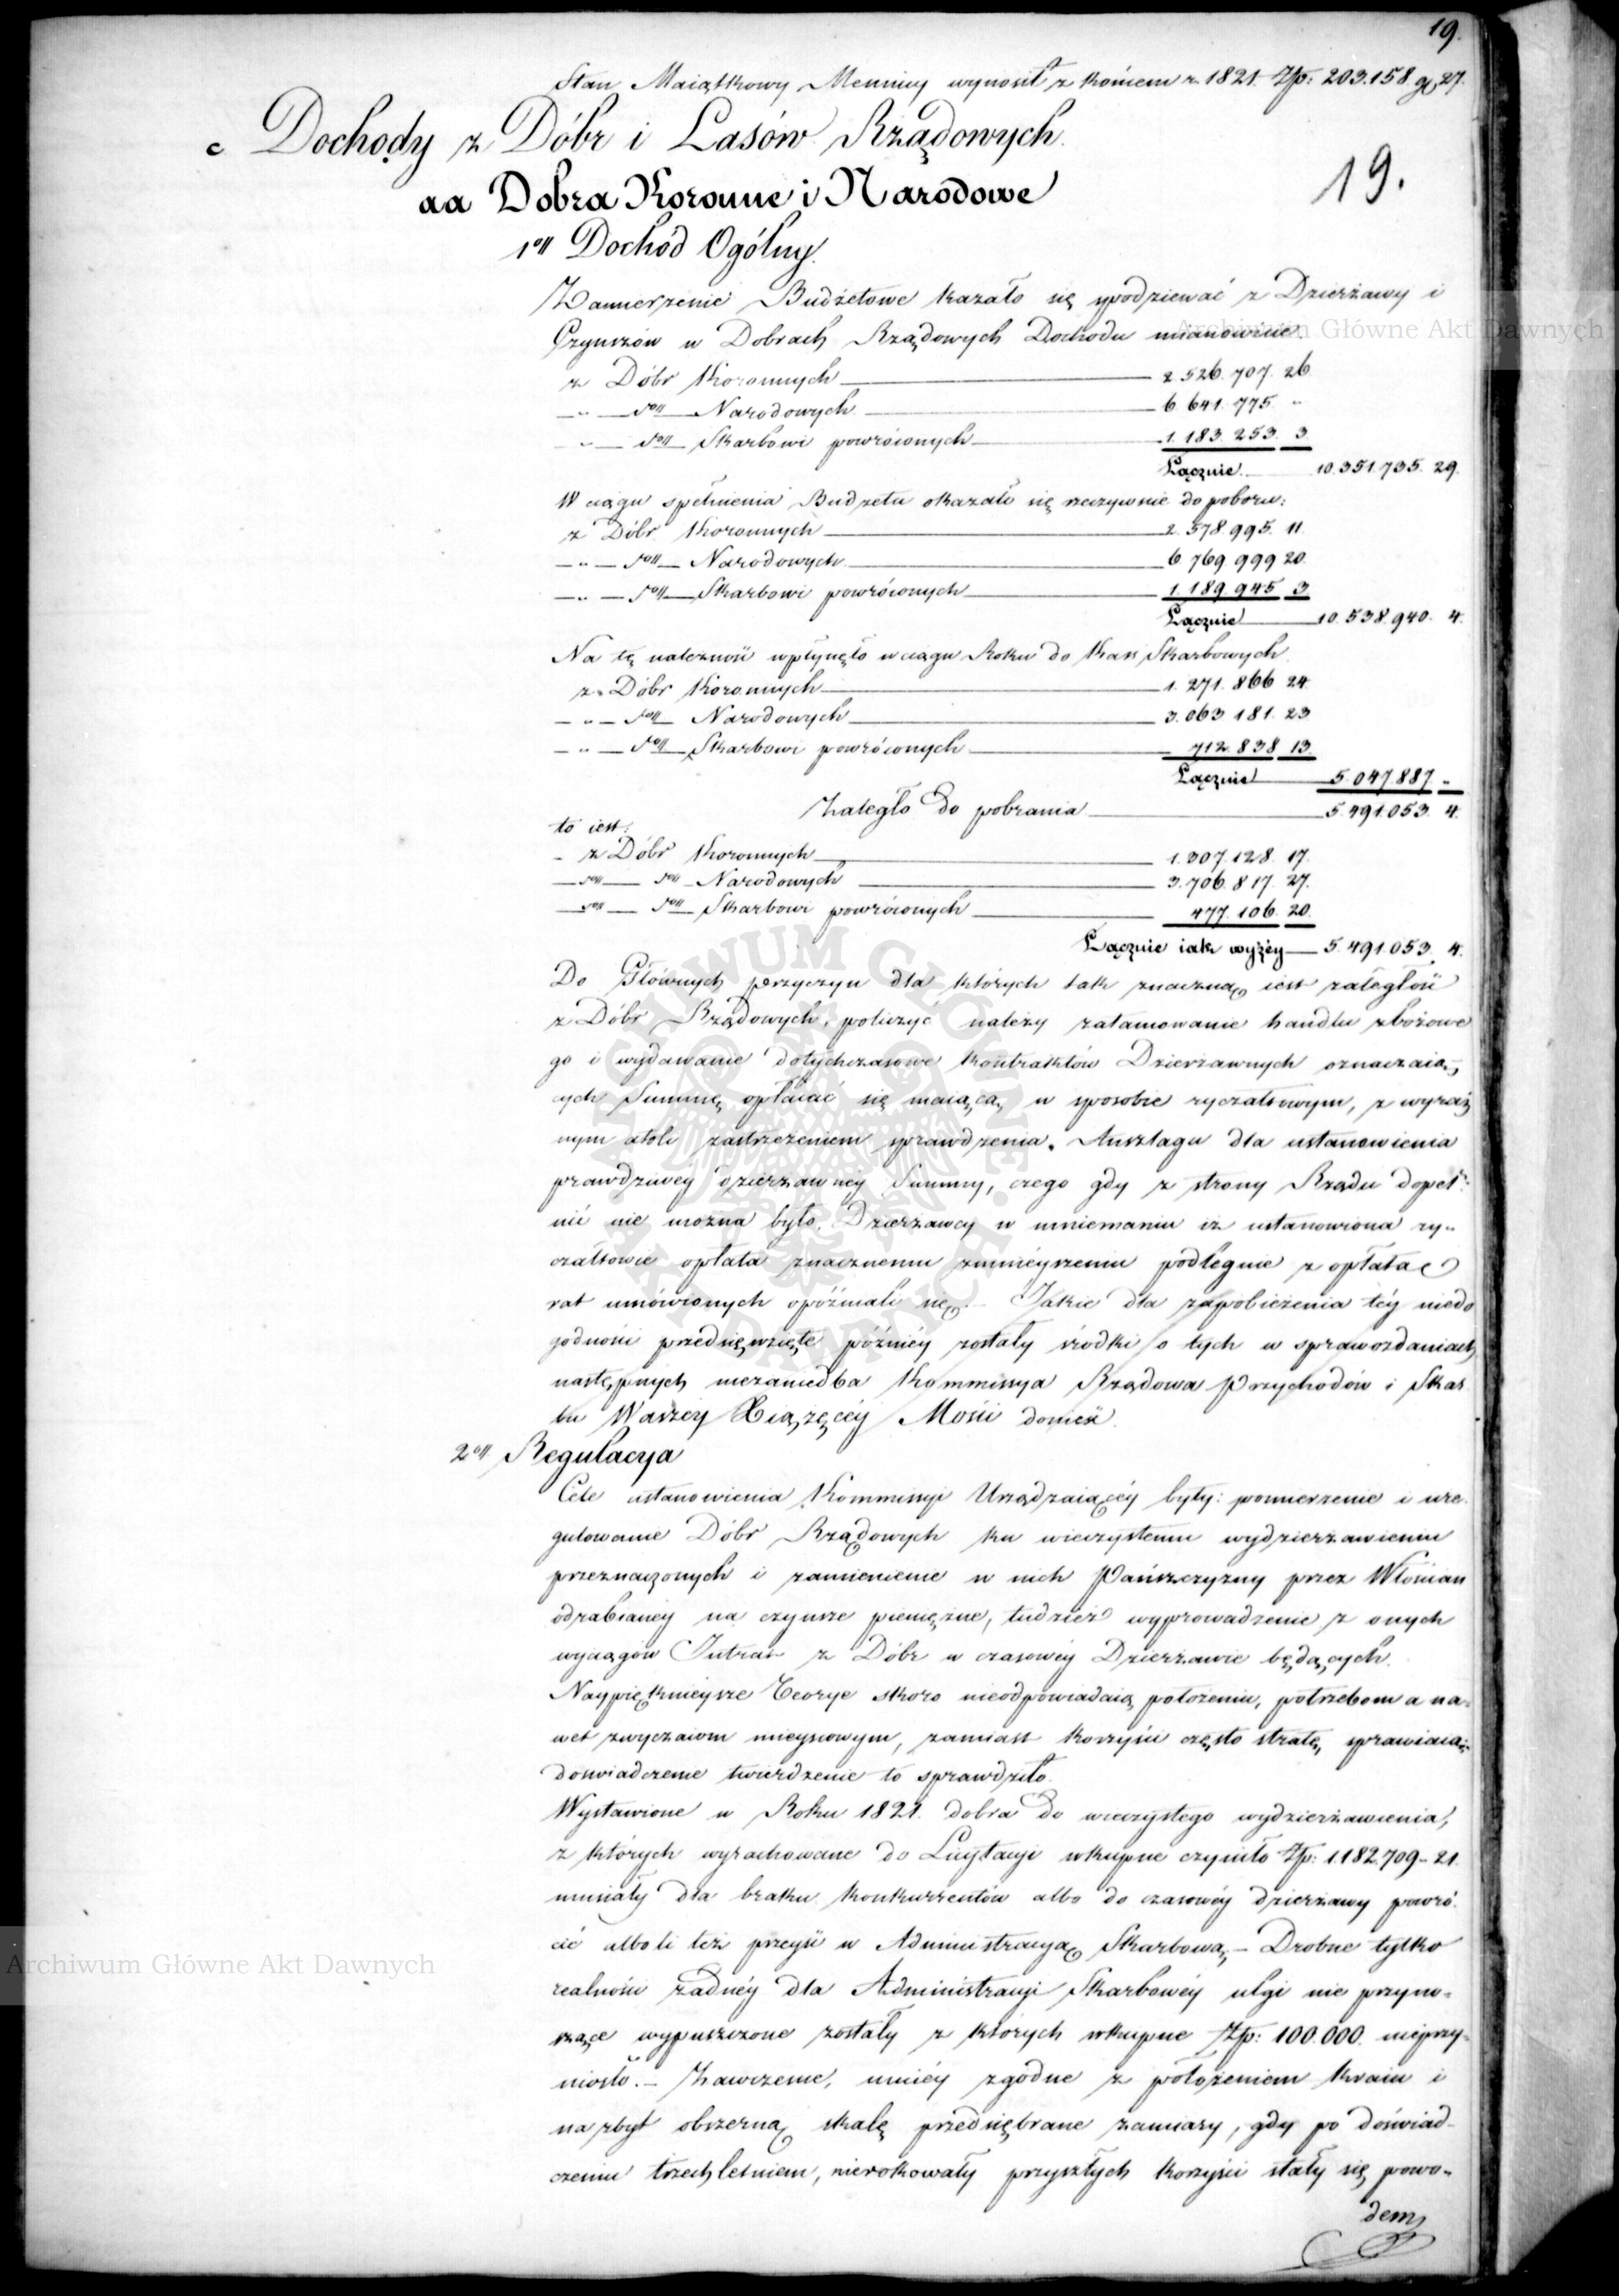 19.
Stan Maiątkowy Mennicy wynosił z końcem r. 1821 Zp: 203.158. g 27.
c Dochody z Dóbr i Lasów Rządowych.
19.
aa Dobra Koronne i Narodowe
1º Dochód Ogólny.
Zamierzenie Budżetowe kazało się spodziewać z Dzierżawy i
Czynszów w Dobrach Rządowych Dochodu mianowicie.
z Dóbr Koronnych — 2.526.707. 26.
— „ — dto — Narodowych — 6.641.775 „
„ — dto — Skarbowi powróconych — 1.183.253. 3
Łącznie — 10.351.735. 29.
W ciągu spełnienia Budżetu okazało się rzeczywiście do poboru:
z Dóbr Koronnych — 2.578.995. 11.
— „ — dto — Narodowych — 6.769.999 20.
— „ — dto — Skarbowi powróconych — 1.189.945 3
Łącznie — 10.538.940. 4.
Na tę należność wpłynęło w ciągu Roku do Kass Skarbowych.
z Dóbr Koronnych — 1.271.866 24
— „ — dto — Narodowych — 3.063.181. 23
— „ — dto — Skarbowi powróconych — 712.838 13.
Łącznie — 5.047.887. „
Zaległo do pobrania — 5.491.053. 4.
to iest:
„ z Dóbr Koronnych — 1.307.128. 17.
— dto — dto — Narodowych — 3.706.817. 27.
— dto — dto — Skarbowi powróconych — 477.106. 20.
Łącznie iak wyżéy — 5.491.053. 4.
Do Głównych przyczyn dla których tak znaczna iest zaległość
z Dóbr Rządowych, policzyć należy zatamowanie handlu zbożowe
go i wydawanie dotychczasowe kontraktów Dzierżawnych oznaczaią-
cych Summę opłacać się maiącą w sposobie ryczałtowym, z wyraź
nym atoli zastrzeżeniem sprawdzenia Anszlagu dla ustanowienia
prawdziwéy dzierżawnéy Summy, czego gdy z strony Rządu dopeł-
nić nie można było, Dzierżawcy w mniemaniu iż ustanowiona ry-
czałtowie opłata znacznemu zmnieyszeniu podlegnie z opłatą
rat umówionych opóźniali się. — Jakie dla zapobieżenia téy niedo
godności przedsięwzięte późniéy zostały środki o tych w sprawozdaniach
następnych niezaniedba Kommissya Rządowa Przychodów i Skar
bu Waszey Xiążęcéy Mości donieść.
2º Regulacya
Cele ustanowienia Kommissyi Urządzaiącéy były: pomierzenie i ure-
gulowanie Dóbr Rządowych ku wieczystemu wydzierżawieniu
przeznaczonych i zamienienie w nich Pańszczyzny przez Włościan
odrabianéy na czynsze pieniężne, tudzież wyprowadzenie z onych
wyciągów Intrat z Dóbr w czasowéy Dzierżawie będących.
Naypięknieysze Teorye skoro nieodpowiadaią położeniu, potrzebom a na-
wet zwyczaiom mieyscowym, zamiast korzyści często stratę sprawiaią:
doświadczenie twierdzenie to sprawdziło.
Wystawione w Roku 1821. dobra do wieczystego wydzierżawienia,
z których wyrachowane do Licytacyi wkupne czyniło Zp: 1.182.709 „ 21.
musiały dla braku konkurrentów albo do czasowéy dzierżawy powró-
cić alboli też przeyść w Administracyą Skarbową. — Drobne tylko
realności żadnéy dla Administracyi Skarbowéy ulgi nie przyno-
szące wypuszczone zostały z których wkupne Zp: 100.000. nieprzy-
niosło. — Zawczesne, mniéy zgodne z położeniem kraiu i
na zbyt obszerną skalę przedsiębrane zamiary, gdy po doświad-
czeniu trzechletniem, nierokowały przyszłych korzyści stały się powo-
dem
Archiwum Główne Akt Dawnych
Archiwum Główne Akt Dawnych
ARCHIWUM GŁÓWNE AKT DAWNYCH